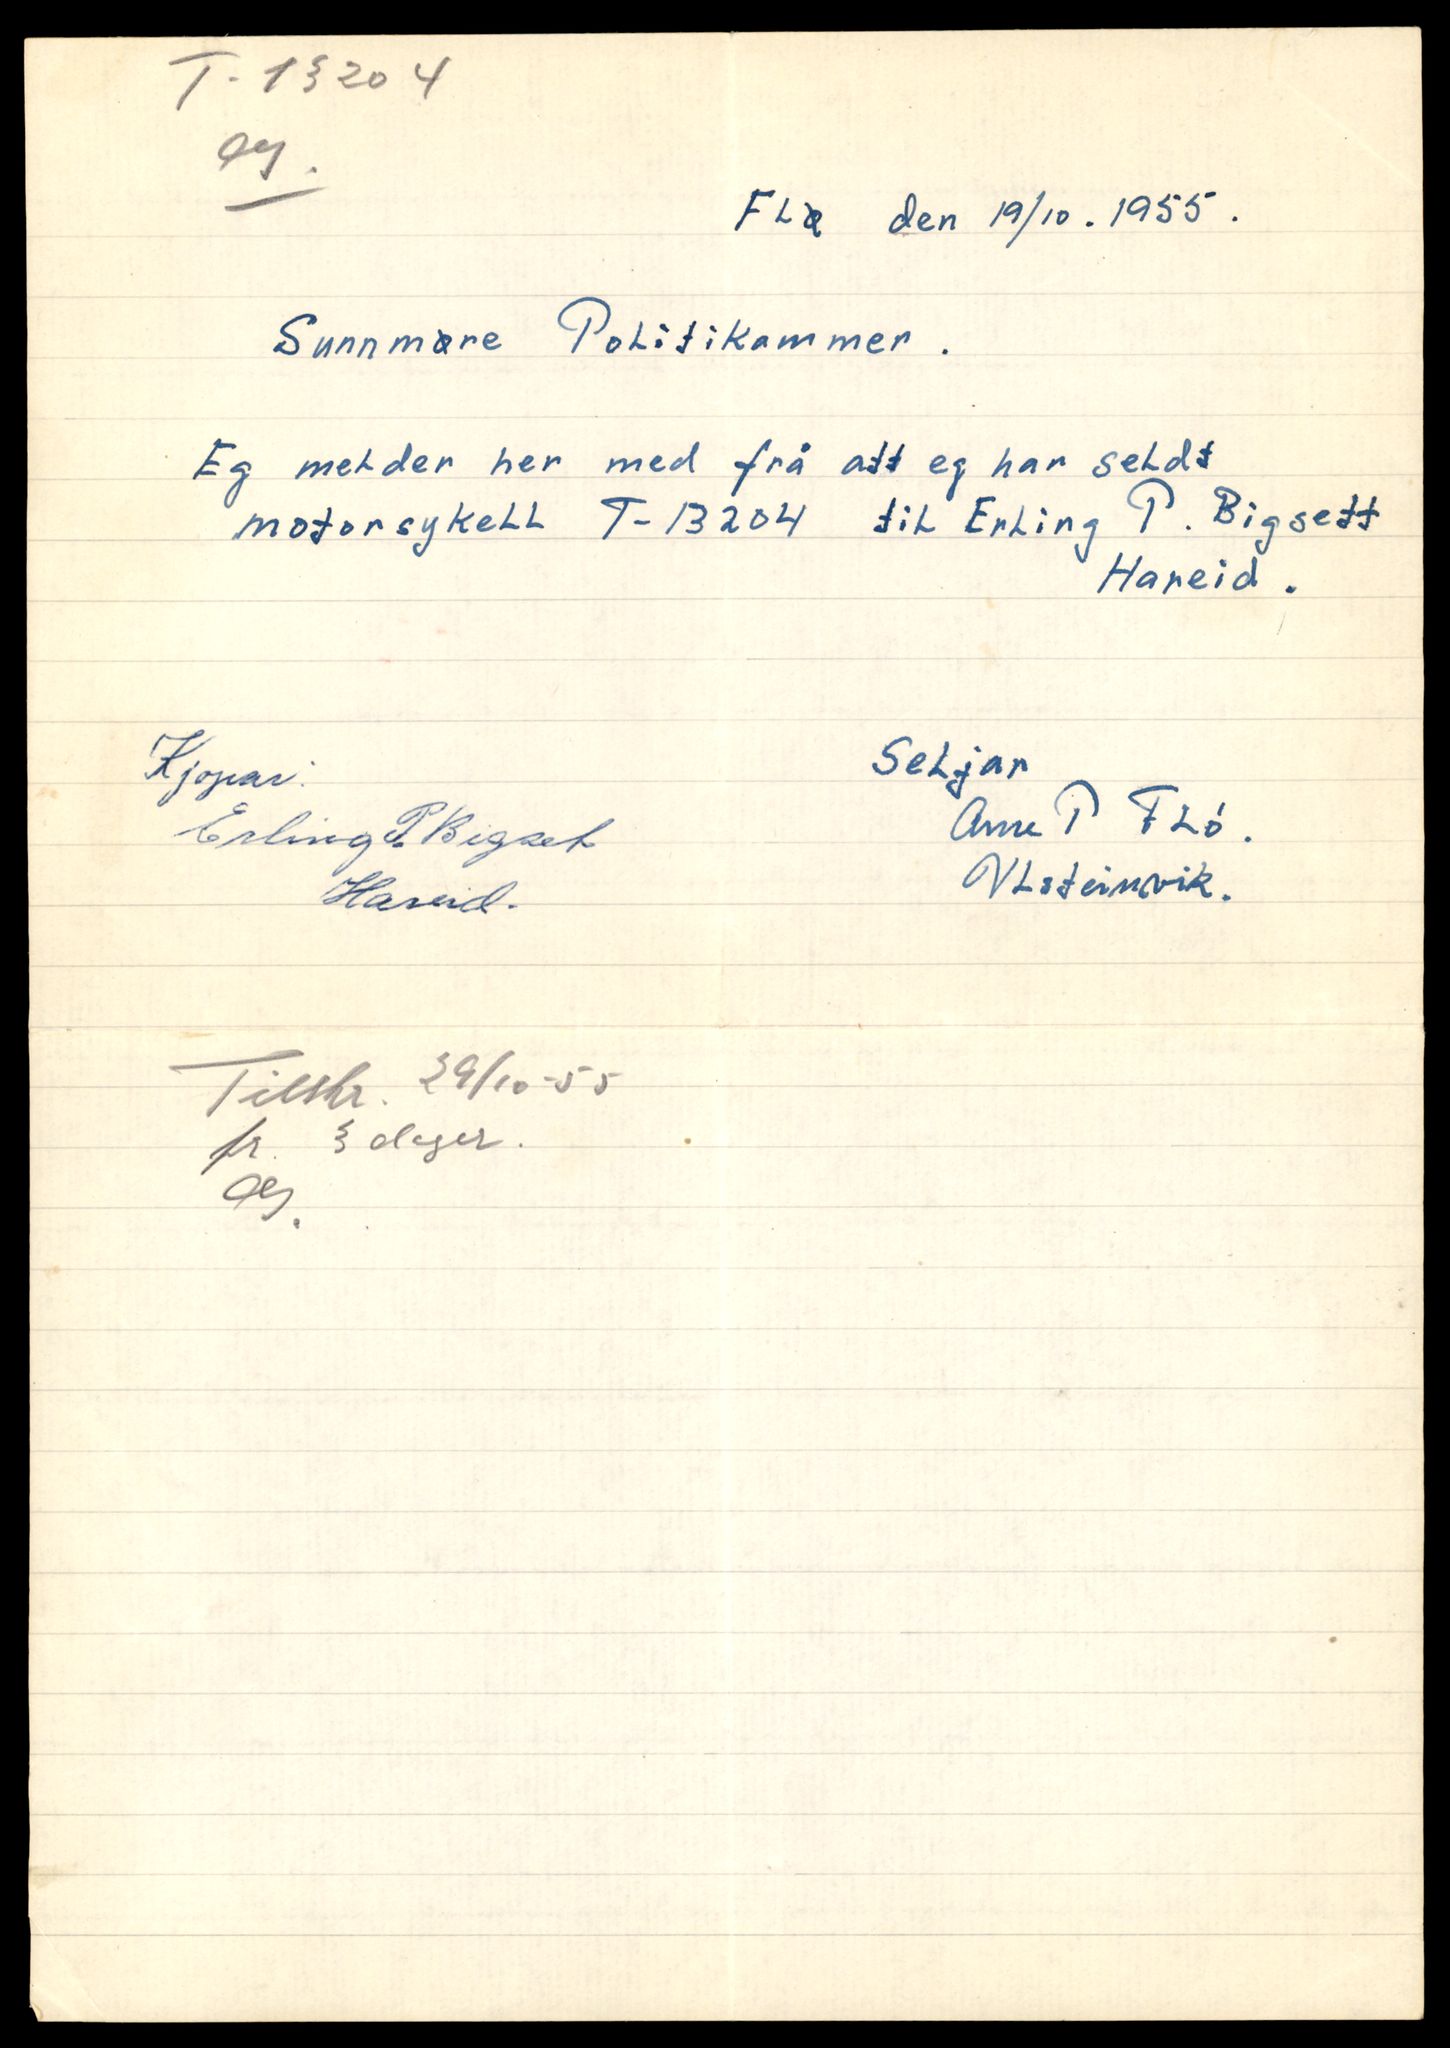 T-13204
Flø den 19/10. 1955.
Sunnmøre Politikammer.
Eg melder her med frå att eg har seldt
motorsykell T-13204 til Erling P. Bigsett
Hareid.
Kjøpar:
Erling P. Bigset
Hareid.
Seljar
Arne P Flø.
Ulsteinvik.
Tilskr. 29/10-55
fr. 3 dager.